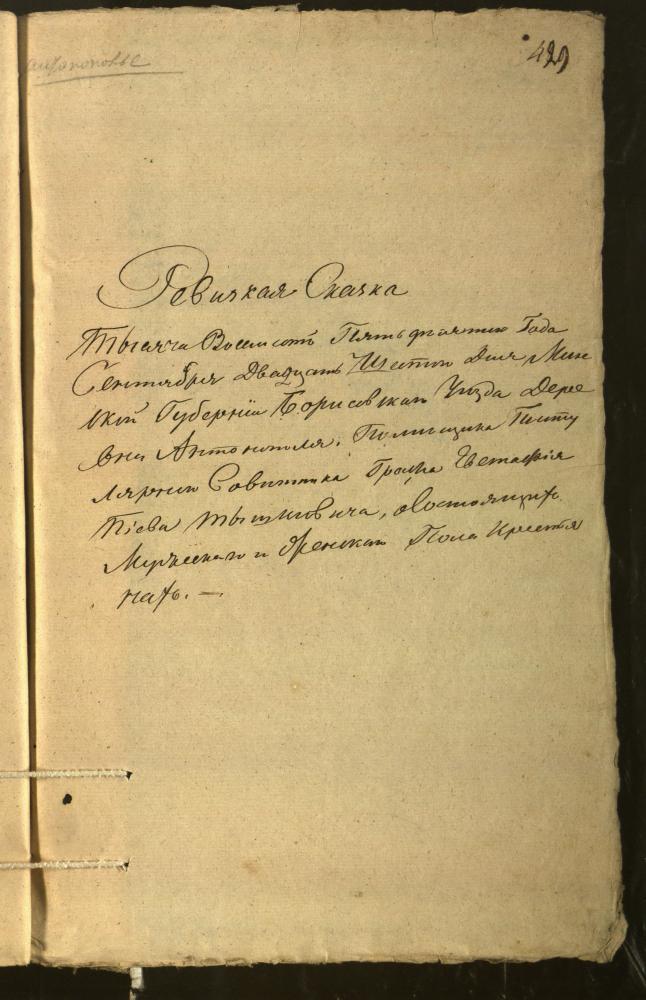 Антополье
429
Ревизская Сказка
Тысяча Восемсотъ Пятьдесятаго Года
Сентября Двадцать Шестаго Дня, Мин
ской Губерніи Борисовскаго Уѣзда Дере
вни Антонополя, Помѣщика Титу
лярнаго Совѣтника Графа Евстафія
Тышкевича, о Состоящихъ
Мужескаго и Женскаго Пола Крестья
нахъ. —